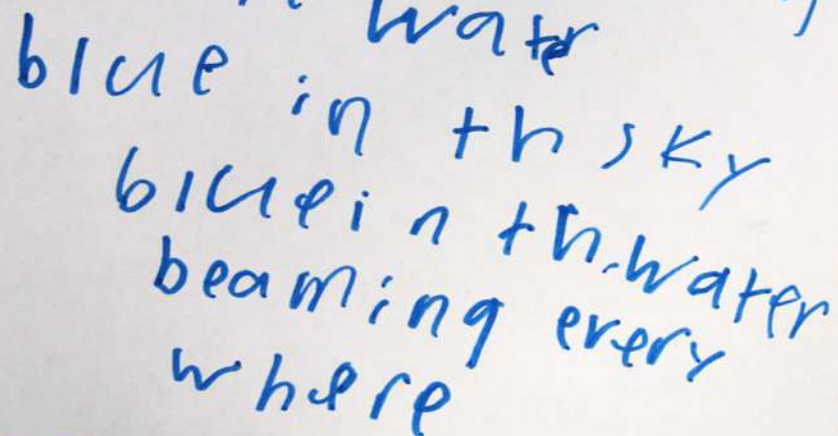 water
blue in th sky
blue in th water
beaming every
where